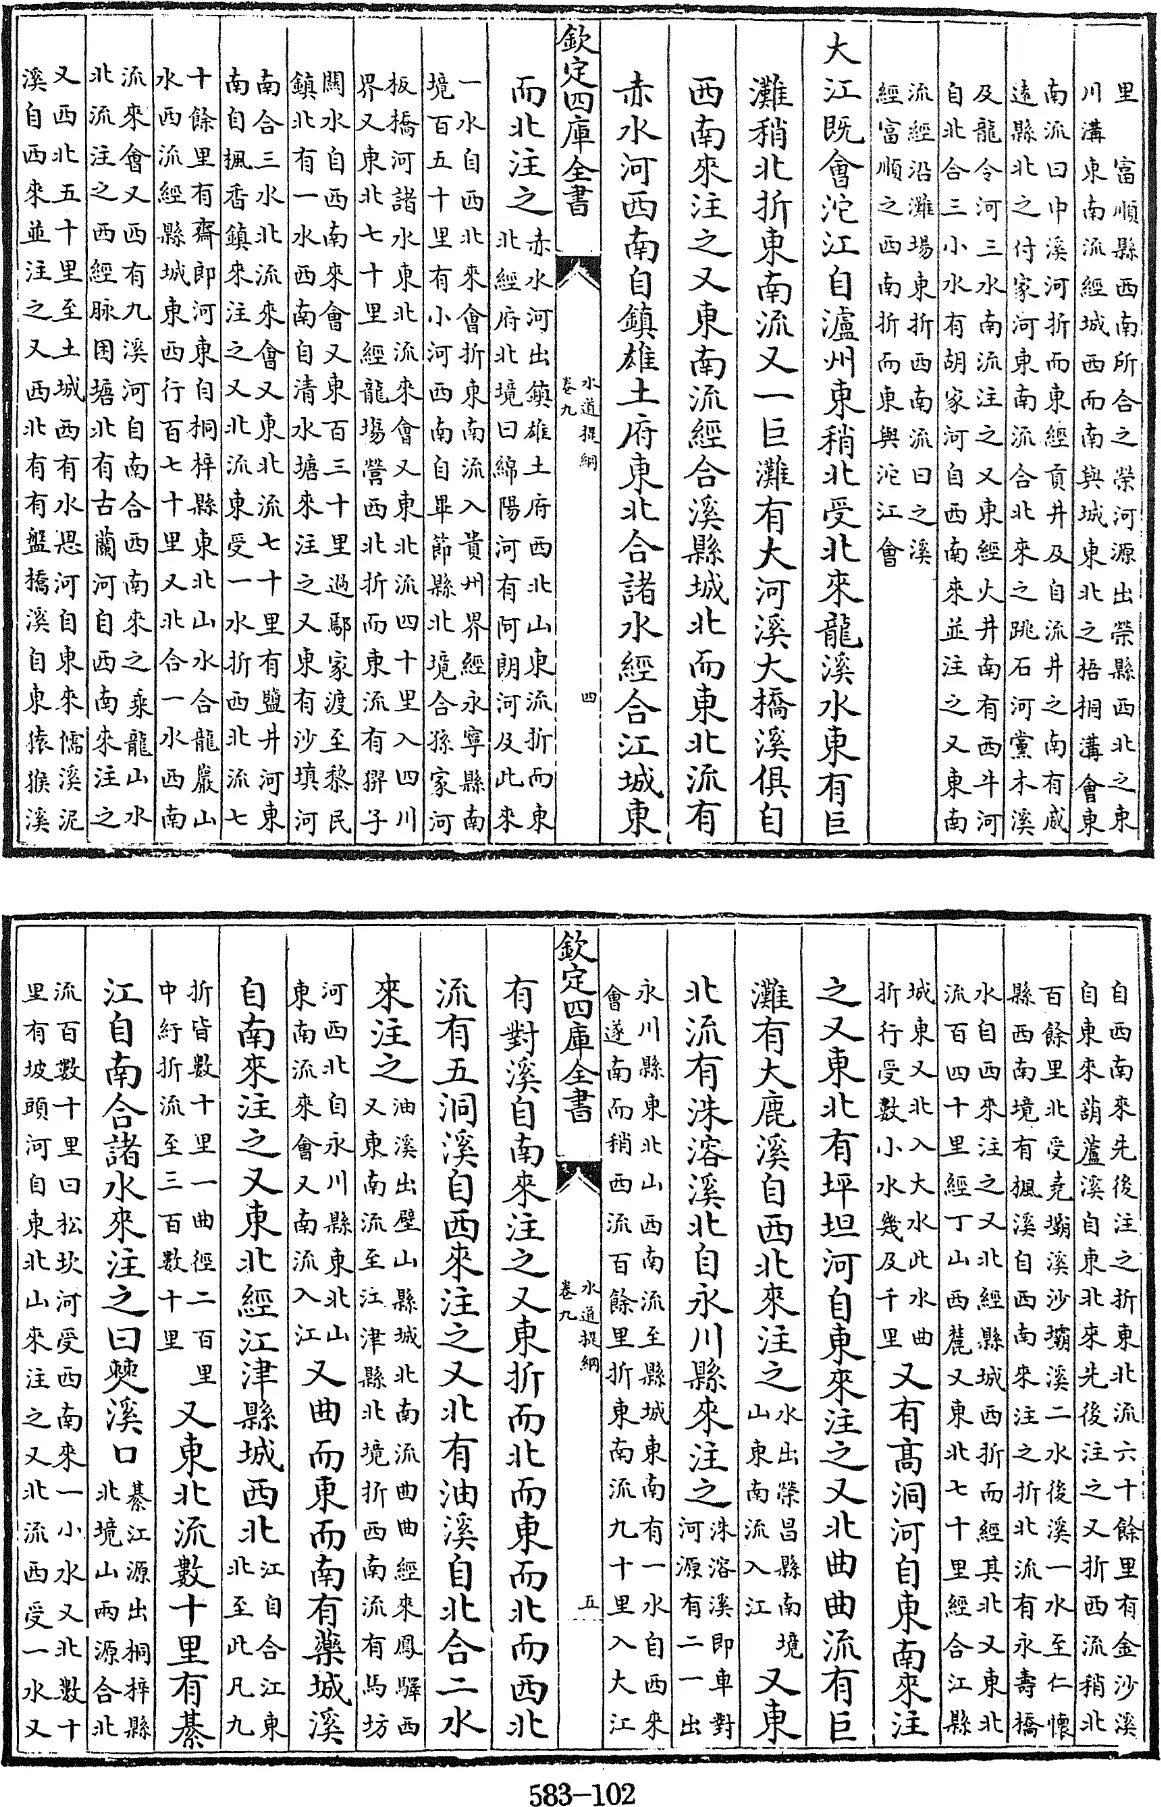 里　富順縣西南所合之榮河源出榮縣西北之東
川溝東南流經城西而南與城東北之梧桐溝會東
南流曰巾溪河折而東經貢井及自流井之南有威
遠縣北之付家河東南流合北來之跳石河黨木溪
及龍令河三水南流注之又東經火井南有西斗河
自北合三小水有胡家河自西南來並注之又東南
流經沿灘場東折西南流曰之溪
經富順之西南折而東與沱江會
大江既會沱江自瀘州東稍北受北來龍溪水東有巨
灘稍北折東南流又一巨灘有大河溪大橋溪俱自
西南來注之又東南流經合溪縣城北而東北流有
赤水河西南自鎮雄土府東北合諸水經合江城東
欽定四庫全書
水道提綱
卷九
四
而北注之
赤水河出鎮雄土府西北山東流折而東
北經府北境曰綿陽河有阿朗河及此來
一水自西北來會折東南流入貴州界經永寧縣南
境百五十里有小河西南自畢節縣北境合猻家河
板橋河諸水東北流來會又東北流四十里入四川
界又東北七十里經龍塲營西北折而東流有子
關水自西南來會又東百三十里過鄢家渡至黎民
鎮北有一水西南自清水塘來注之又東有沙填河
南合三水北流來會又東北流七十里有鹽井河東
南自楓香鎮來注之又北流東受一水折西北流七
十餘里有齋郎河東自桐梓縣東北山水合龍巖山
水西流經縣城東西行百七十里又北合一水西南
流來會又西有九溪河自南合西南來之乘龍山水
北流注之西經脉囷塘北有古藺河自西南來注之
又西北五十里至土城西有水思河自東來儒溪泥
溪自西來並注之又西北有有盤橋溪自東猿猴溪
自西南來先後注之折東北流六十餘里有金沙溪
自東來葫蘆溪自東北來先後注之又折西流稍北
百餘里北受堯壩溪沙壩溪二水後溪一水至仁懷
縣西南境有楓溪自西南來注之折北流有永壽橋
水自西來注之又北經縣城西折而經其北又東北
流百四十里經丁山西麓又東北七十里經合江縣
城東又北入大水此水曲
折行受數小水幾及千里
又有高洞河自東南來注
之又東北有坪坦河自東來注之又北曲曲流有巨
灘有大鹿溪自西北來注之
水出榮昌縣南境
山東南流入江
又東
北流有洙溶溪北自永川縣來注之
洙溶溪即車對
河源有二一出
永川縣東北山西南流至縣城東南有一水自西來
會遂南而稍西流百餘里折東南流九十里入大江
欽定四庫全書
水道提綱
卷九
五
有對溪自南來注之又東折而北而東而北而西北
流有五洞溪自西來注之又北有油溪自北合二水
來注之
油溪出壁山縣城北南流曲曲經來鳳驛西
又東南流至江津縣北境折西南流有馬坊
河西北自永川縣東北山
東南流來會又南流入江
又曲而東而南有藥城溪
自南來注之又東北經江津縣城西北
江自合江東
北至此凡九
折皆數十里一曲徑二百里
中紆折流至三百數十里
又東北流數十里有綦
江自南合諸水來注之曰僰溪口
綦江源出桐梓縣
北境山兩源合北
流百數十里曰松坎河受西南來一小水又北數十
里有坡頭河自東北山來注之又北流西受一水又
583-102